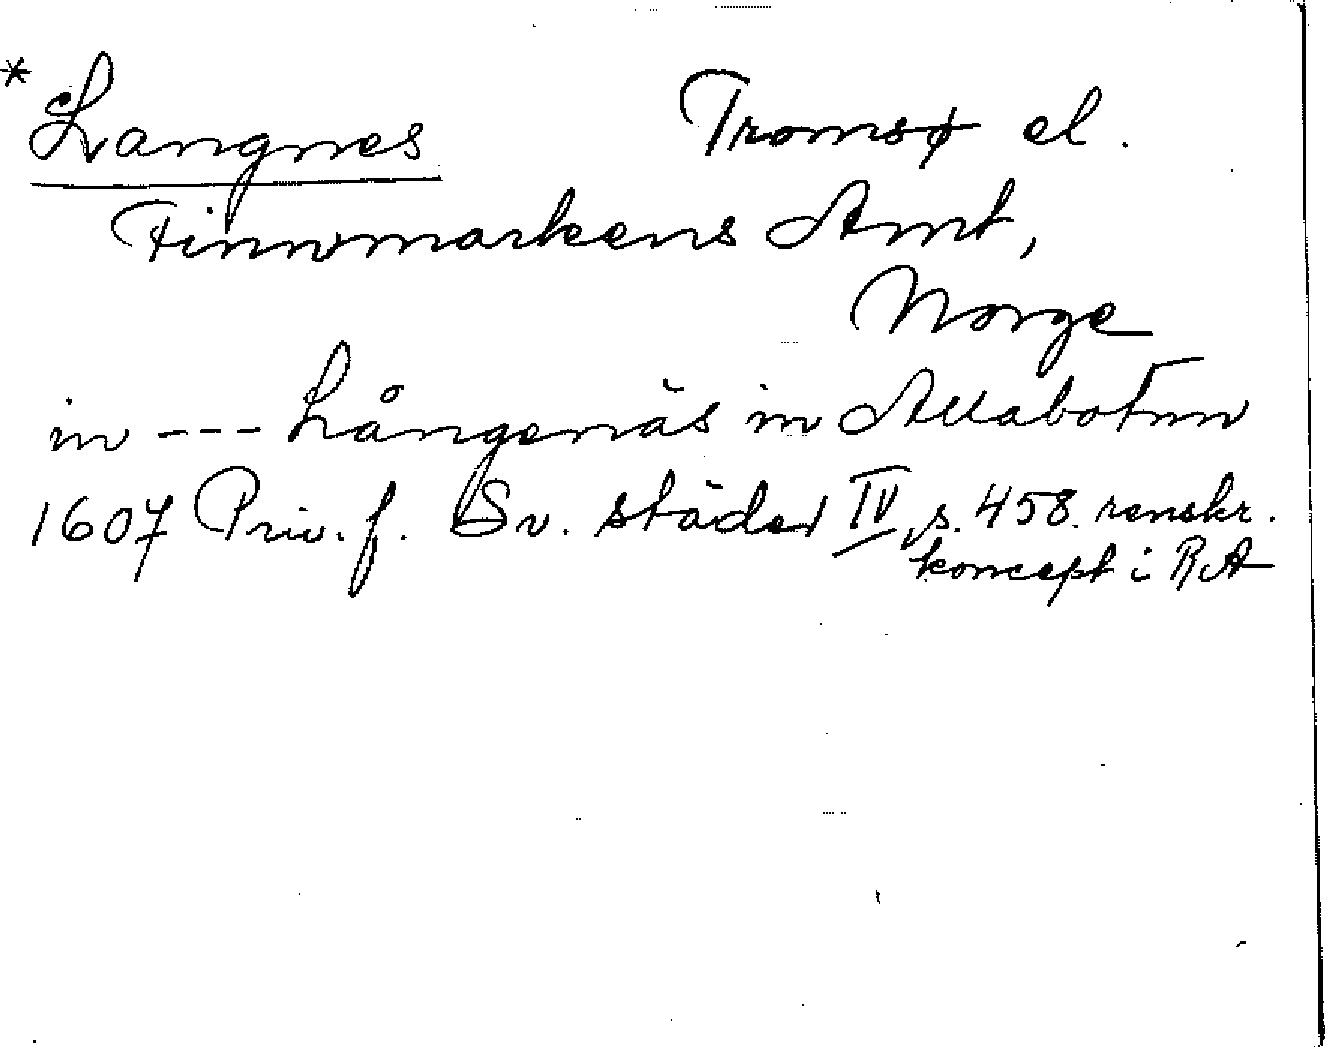 * Langnes Tromsø el.
Finnmarkens Amt,
Norge
in --- Långenäs in Altabotnn
1607 Priv. f. Sv. städer IV, s. 458. renskr.
koncept i RA